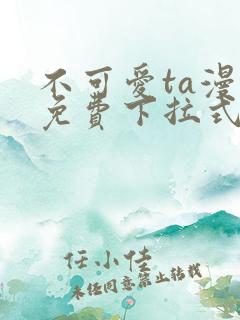 不可爱ta漫
免費下拉式
任小佳
未经同意禁止转载